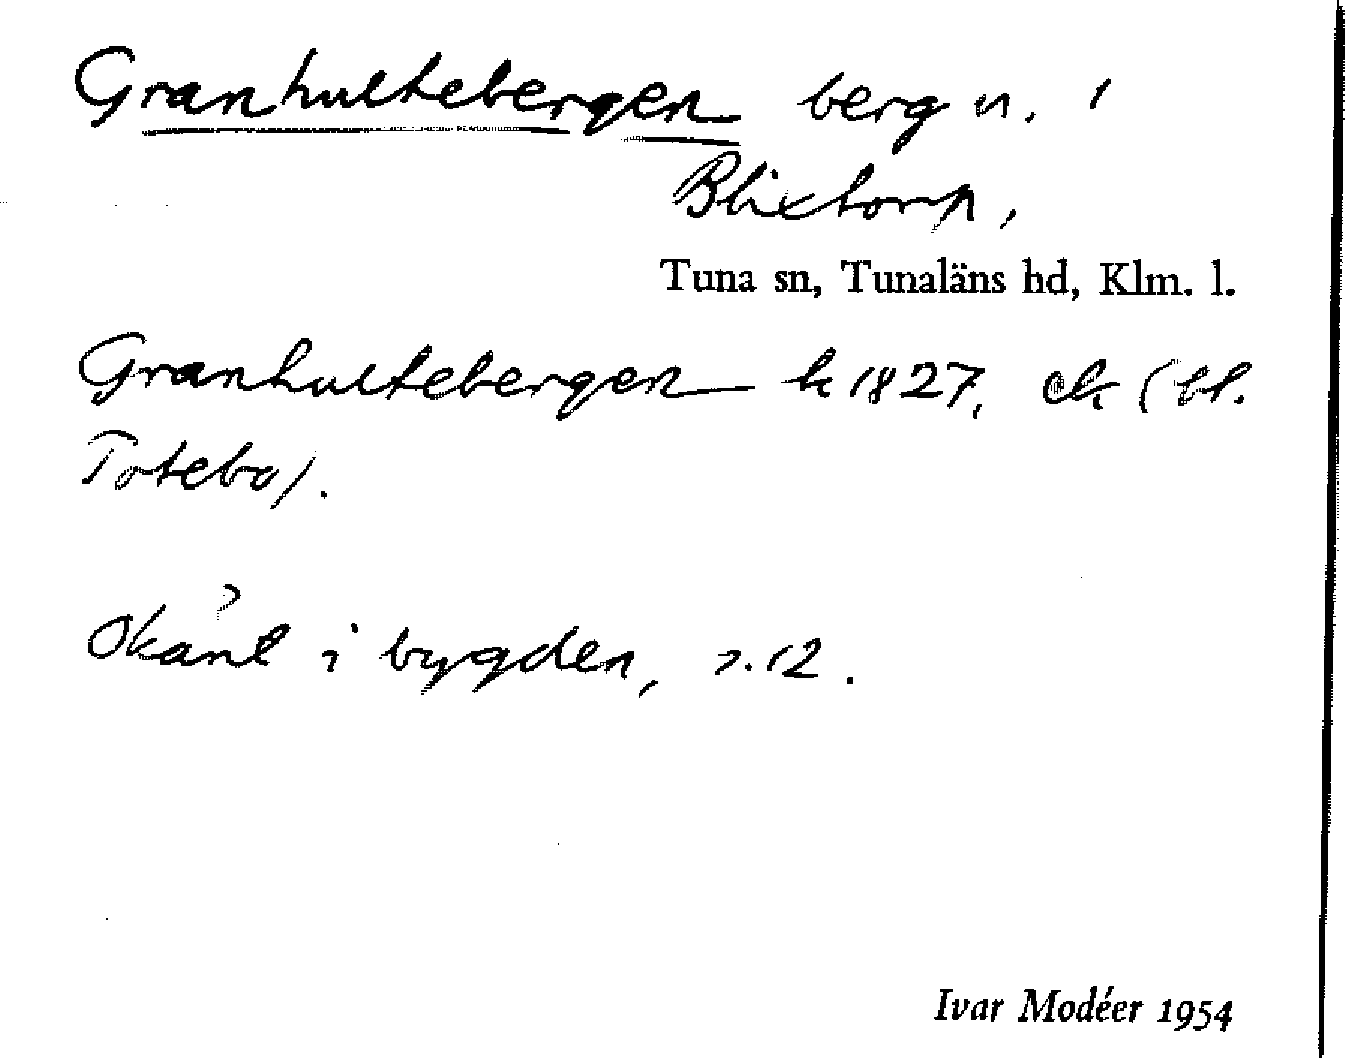 Granhultebergen berg n. i
Blixtorp,
Tuna sn, Tunaläns hd, Klm. l.
Granhultebergen k 1827, ek (bl.
Totebo).
Okänt i bygden, s. 12.
Ivar Modéer 1954